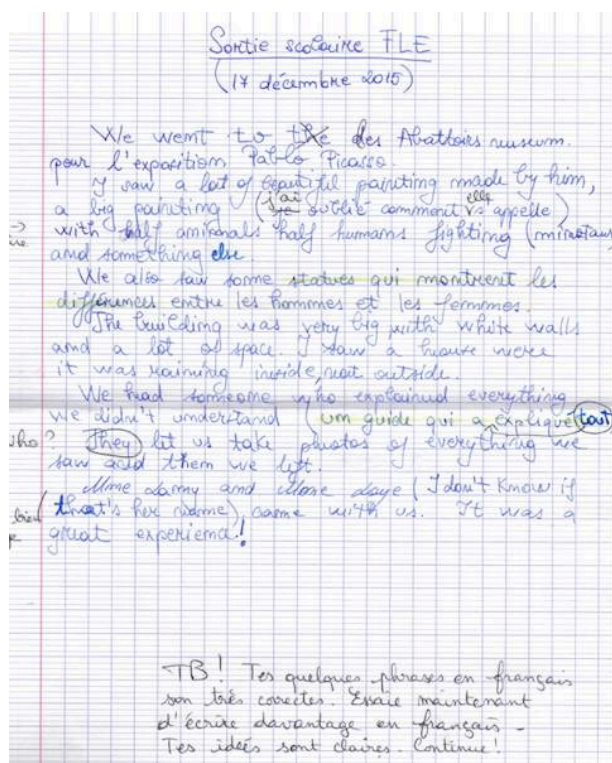 Sortie scolaire FLE
(17 décembre 2015)
We went to the les Abattoirs museum.
pour l'exposition Pablo Picasso.
I saw a lot of beautiful painting made by him,
a big painting (je j'ai oublié comment elle s'appelle)
with half animals half humans fighting (minotaure
and something else.
We also saw some statues qui montrent les
différences entre les hommes et les femmes.
The building was very big with white walls
and a lot of space. I saw a house were
it was raining inside, not outside.
We had someone who explained everything
we didn't understand (un guide qui a expliqué tout
who? They let us take photos of everything we
saw and them we left.
Mme Lamy and Mme Laye (I don't know if
bien that's her name), came with us. It was a
great experience!
TB! Tes quelques phrases en français
son très correctes. Essaie maintenant
d'écrire davantage en français.
Tes idées sont claires. Continue!